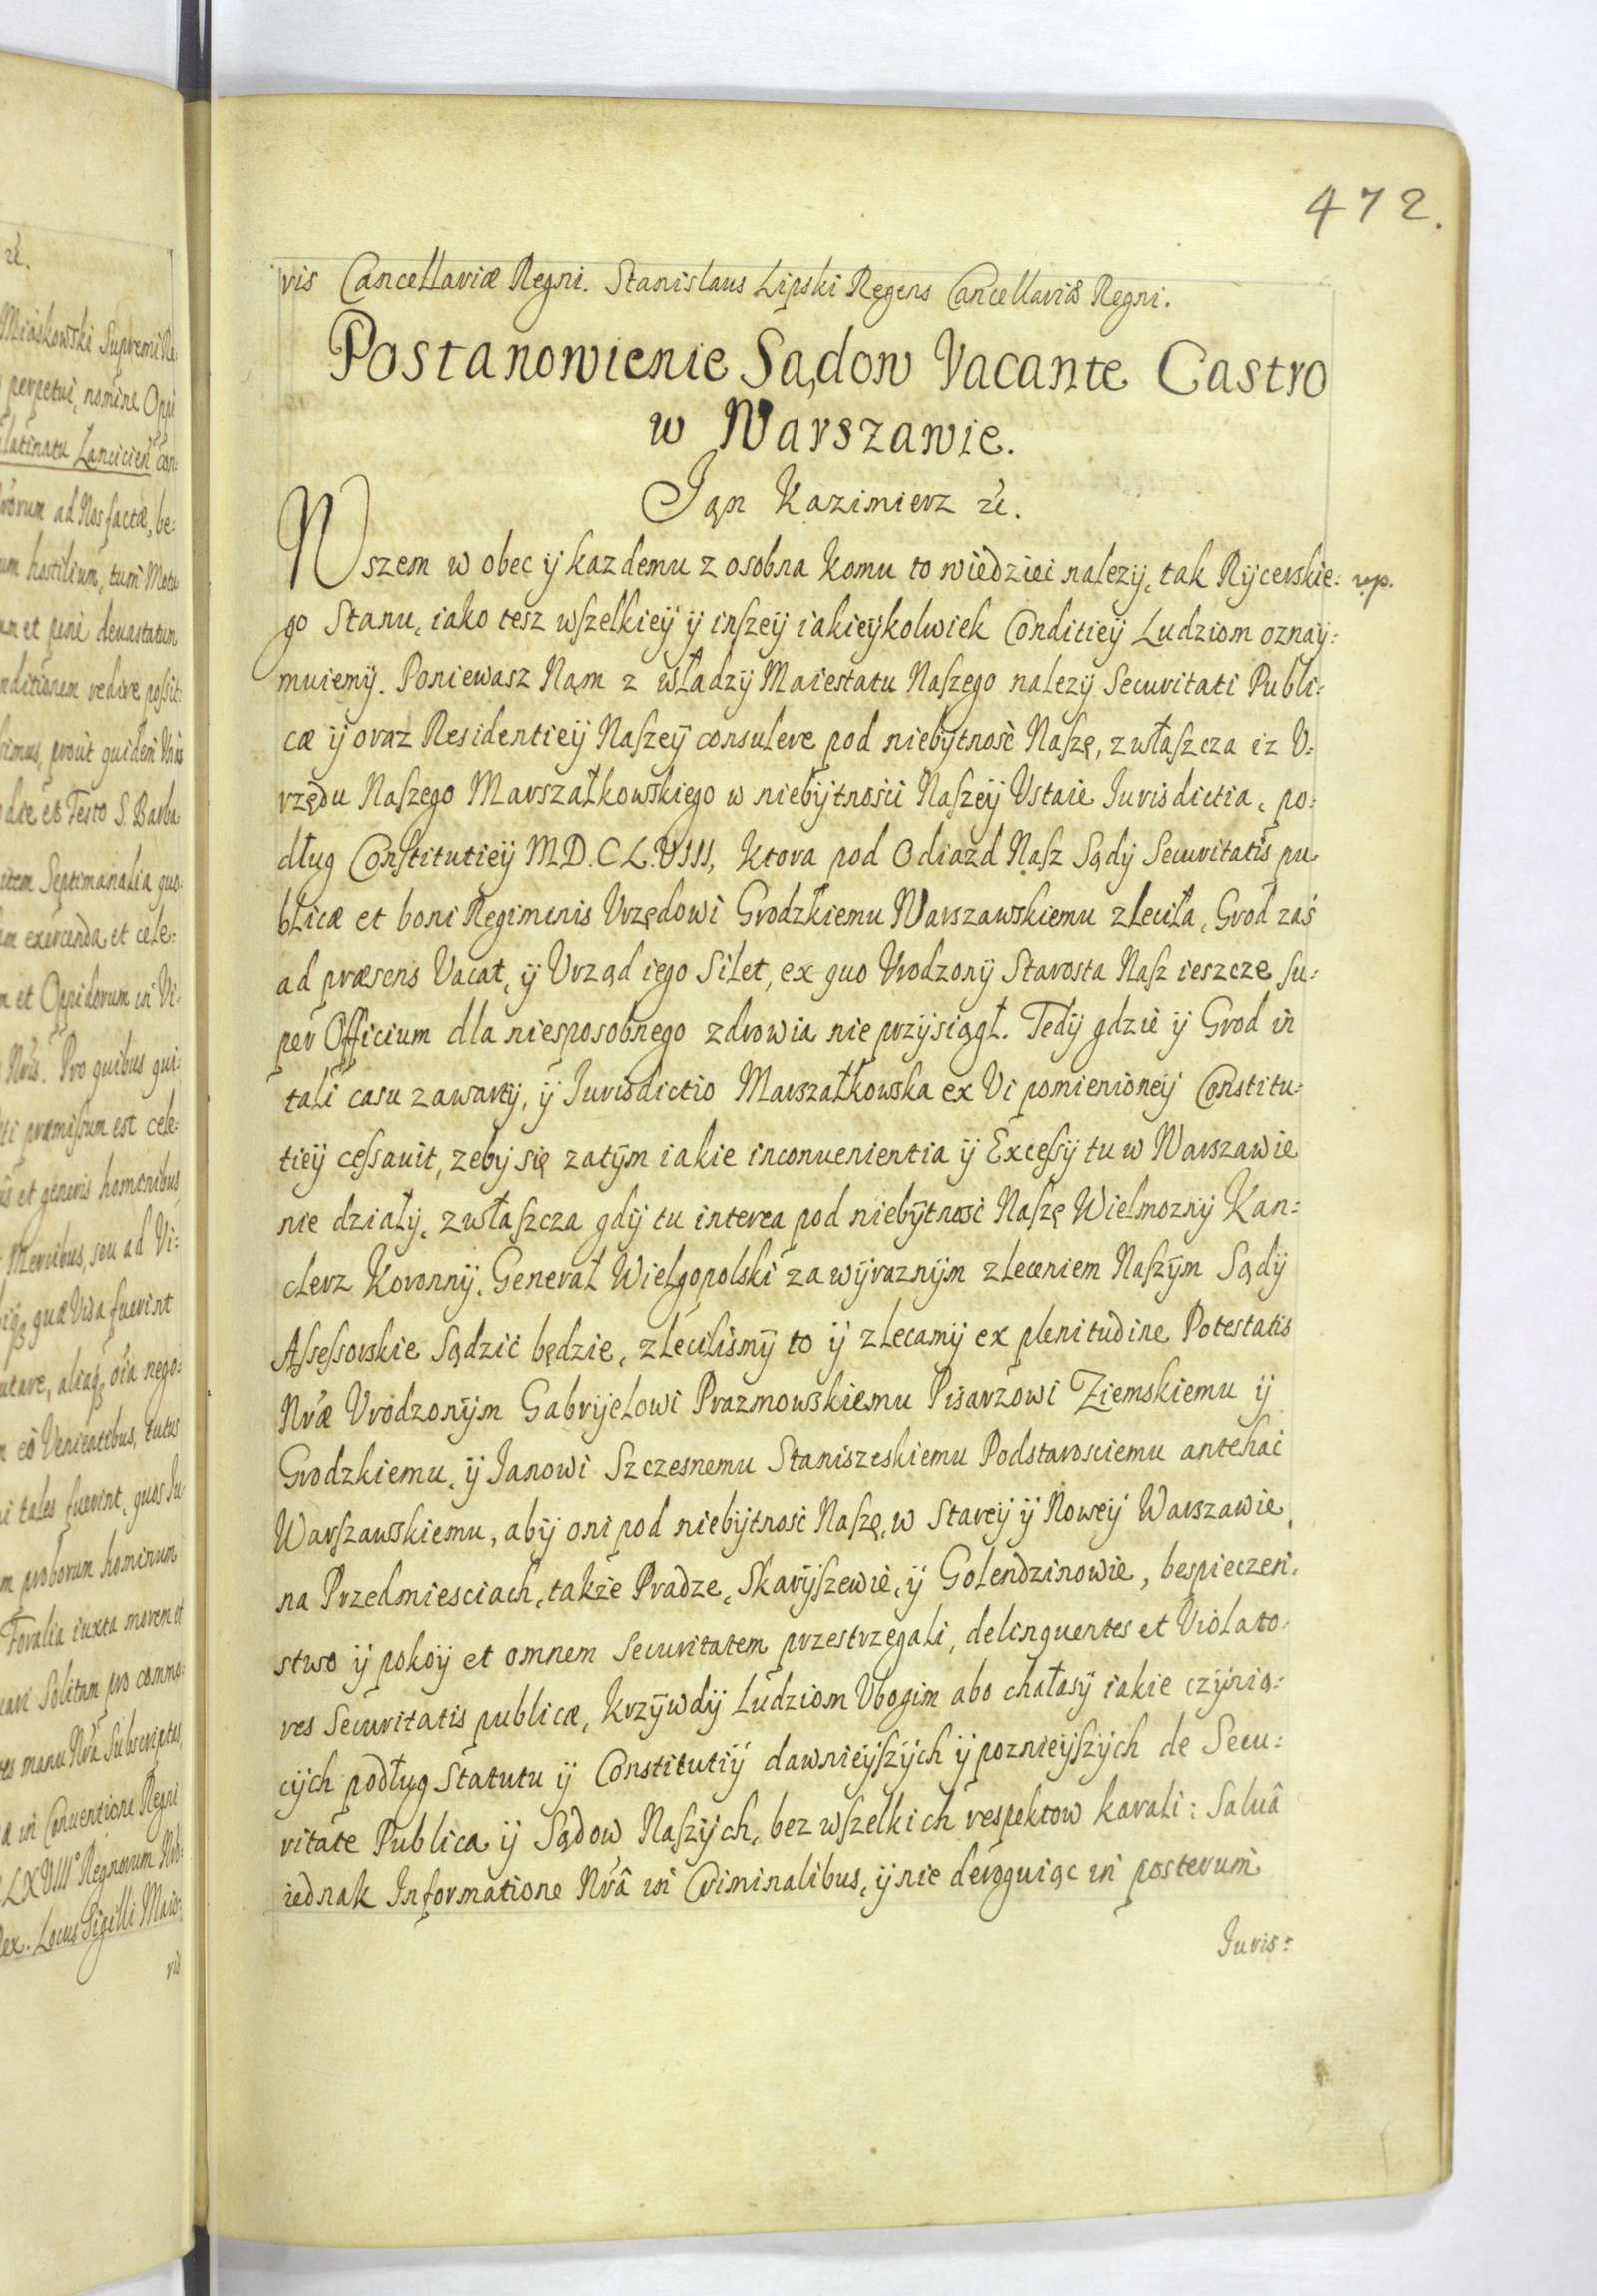 472.
ris Cancellariæ Regni. Stanislaus Lipski Regens Cancellariæ Regni.
Postanowienie Sądow Vacante Castro
w Warszawie.
Jan Kazimierz &c.
Wszem w obec ÿ kazdemu z osobna komu to wiedziec nalezÿ, tak Rÿcerskie: rp.
go Stanu, iako tesz wszelkieÿ ÿ inszeÿ iakieÿkolwiek Conditieÿ Ludziom oznaÿ:
muiemÿ. Poniewasz Nąm z władzÿ Maiestatu Naszego nalezÿ Securitati Publi:
cæ ÿ oraz Residentieÿ Naszeÿ consulere pod niebÿtnosć Naszę, zwłaszcza iz U:
rzędu Naszego Marszałkowskiego w niebÿtnosci Naszeÿ Ustaie Jurisdictia, po:
dług Constitutieÿ M.D.C.L.VIII, ktora pod Odiazd Nasz Sądÿ Securitatis pu
blicæ et boni Regiminis Urzędowi Grodzkiemu Warszawskiemu zleciła, Grod zaś
ad præsens Vacat, ÿ Urząd iego Silet, ex quo Urodzonÿ Starosta Nasz ieszcze su:
per Officium dla niesposobnego zdrowia nie przÿsiągł. Tedÿ gdzie ÿ Grod in
tali casu zawartÿ, ÿ Jurisdictio Marszałkowska ex Vi pomienioneÿ Constitu:
tieÿ cessauit, zebÿ się zatÿm iakie inconuenientia ÿ Excessÿ tu w Warszawie
nie działÿ, zwłaszcza gdÿ tu interea pod niebÿtnosć Naszę Wielmoznÿ Kan:
clerz Koronnÿ, Generał Wielgopolski za wÿraznÿm zleceniem Naszÿm Sądÿ
Assessorskie Sądzić będzie, zlecilismÿ to ÿ zlecamÿ ex plenitudine Potestatis
Nræ Urodzonÿm Gabrÿelowi Prazmowskiemu Pisarzowi Ziemskiemu ÿ
Grodzkiemu, ÿ Janowi Szczesnemu Staniszeskiemu Podstarosciemu antehac
Warszawskiemu, abÿ oni pod niebÿtnosć Naszę, w Stareÿ ÿ Noweÿ Warszawie,
na Przedmiesciach, także Pradze, Skarÿszewie, ÿ Golendzinowie, bespieczen:
stwo ÿ pokoÿ et omnem securitatem przestrzegali, delinquentes et Violato:
res Securitatis publicæ, krzÿwdÿ Ludziom Ubogim abo chałasÿ iakie czÿnią:
cÿch podług Statutu ÿ Constitutiÿ dawnieÿszÿch ÿ poznieÿszÿch de Secu:
ritate Publica ÿ Sądow Naszÿch, bez wszelkich respektow karali: Saluâ
iednak Informatione Nrâ in Criminalibus, ÿ nie deroguiąc in posterum
Juris:
&c.
Miaskowski Supremi Re:
perpetui, nomine Oppi
latinatu Lancicien con:
rorum ad Nos factæ, be:
um hostilium, tum Metu
um et peni deuastatum
nditionem redire possit
simus, prout quidem Unis
die et Festo S. Barba
item Septimanalia quo:
am exercenda et cele:
m et Oppidorum in Vi:
Nris. Pro quibus qui:
ti præmissum est cele:
us et generis hominibus
Mercibus, seu ad Vi:
quæ Visa fuerint
utare, aliaq, oia nego:
n eo Venientibus, tutus
i tales fuerint, quos Ju:
m proborum hominum
Foralia iuxta morem et
cari Solitam pro commo:
es manu Nra Subscriptas,
a in Conuentione Regni
LXVIII° Regnorum Nro:
Rex. Locus Sigilli Maio:
ris